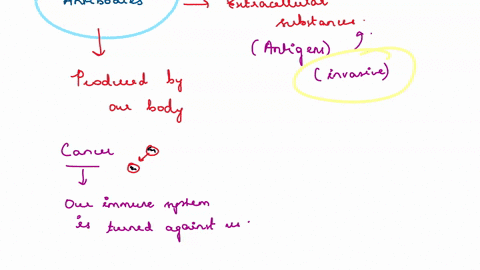 Antibodies → Extracellular
substances.
(Antigen)
(invasive)
Produced by
our body
Cancer
Our immune system
is turned against us.